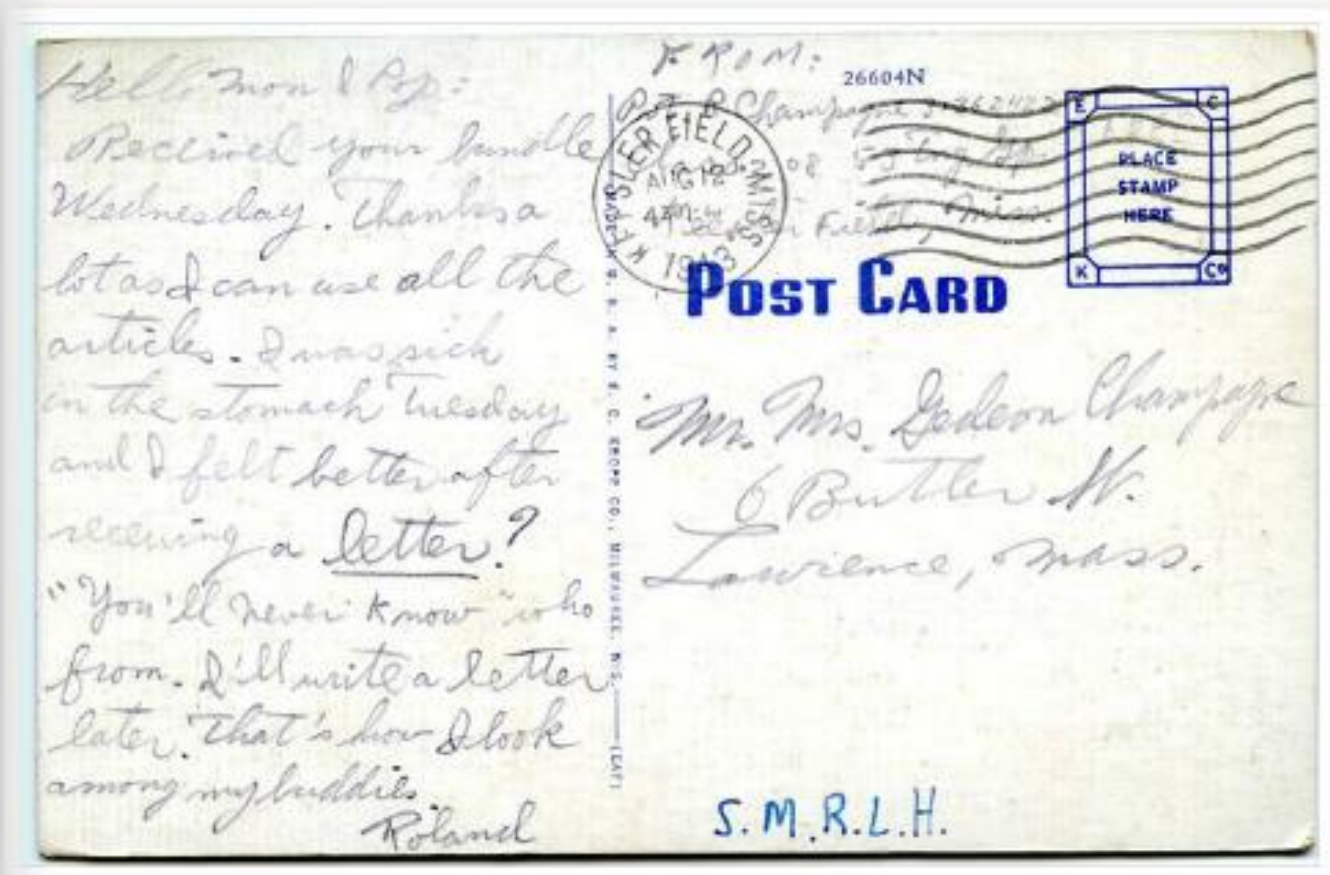 Hello Mom & Pop:
Received your bundle
Wednesday. Thanks a
lot as I can use all the
articles. I was sick
in the stomach Tuesday
and I felt better after
receiving a letter?
"You'll never know" who
from. I'll write a letter
later. That's how I look
among my buddies.
Roland
MADE IN U. S. A. BY E. C. KROPP CO., MILWAUKEE, WIS.
FROM:
26604N
Champagne
Field, Miss.
KEESLER FIELD MISS.
AUG 12
1943
E C
PLACE
STAMP
HERE
K Co
POST CARD
Mr. Mrs. Gedeon Champagne
6 Butler St.
Lawrence, Mass.
S.M.R.L.H.